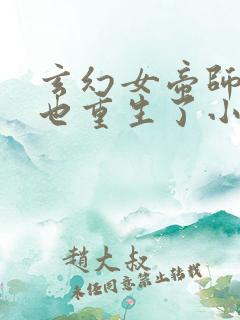 玄幻女帝師
也重生了小
趙大叔
未经同意禁止转载